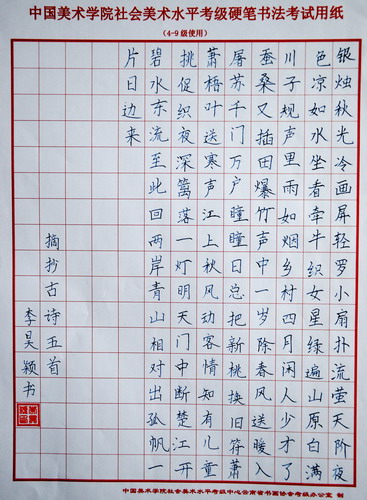 中国美术学院社会美术水平考级硬笔书法考试用纸
（4-9级使用）
银烛秋光冷画屏轻罗小扇扑流萤天阶夜
色凉如水坐看牵牛织女星绿遍山原白满
川子规声里雨如烟乡村四月闲人少才了
蚕桑又插田爆竹声中一岁除春风送暖入
屠苏千门万户曈曈日总把新桃换旧符萧
萧梧叶送寒声江上秋风动客情知有儿童
挑促织夜深篱落一灯明天门中断楚江开
碧水东流至此回两岸青山相对出孤帆一
片日边来
摘抄古诗五首
李昊颖书
中国美术学院社会美术水平考级中心云南省书画协会考级办公室 制